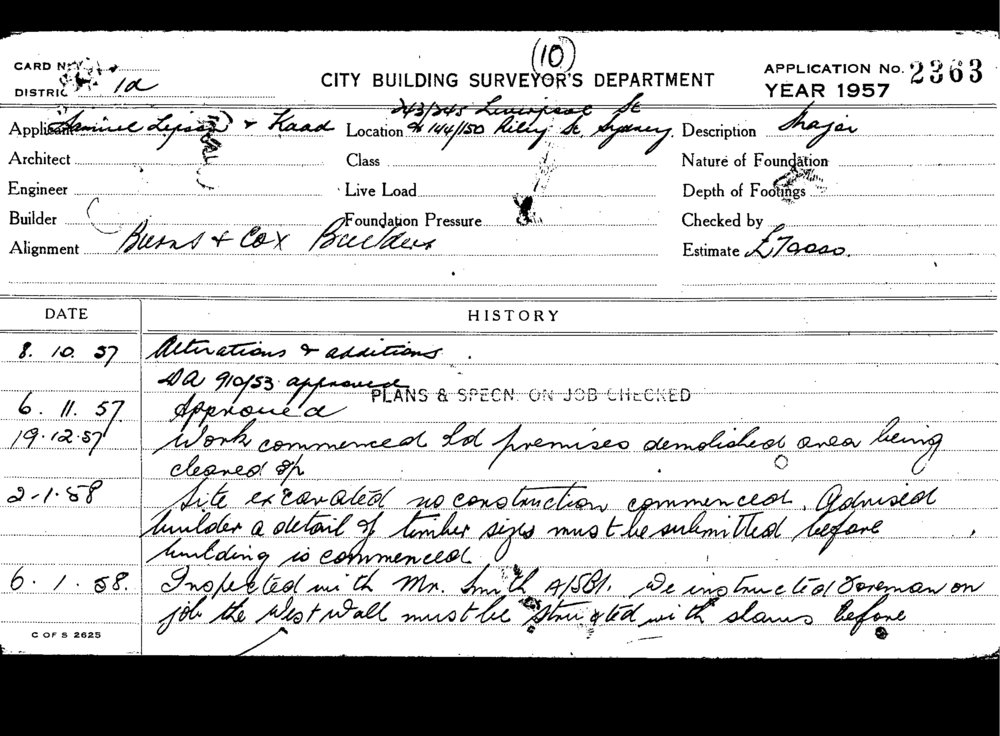 (10)
CARD No.
CITY BUILDING SURVEYOR'S DEPARTMENT
APPLICATION No. 2363
DISTRIC 1a
YEAR 1957
243/245 Liverpool St
Applicant Samuel Lipson & Kaad Location & 144/150 Riley St. Sydney. Description
Architect Class Nature of Foundation
Engineer Live Load Depth of Footings
Builder Foundation Pressure Checked by
Alignment Burns & Cox Builders Estimate £72000.
DATE HISTORY
8. 10. 57 Alterations & additions.
DA 910/53 approved
PLANS & SPECN. ON JOB CHECKED
6. 11. 57. Approved
19.12.57 Work commenced old premises demolished area being
cleaned up
2-1.58 Site excavated no construction commenced. Advised
builder a detail of timber sizes must be submitted before
building is commenced
6. 1. 58. Inspected with Mr. Smith A/SBI. We instructed foreman on
job the West Wall must be with before
C OF S 2625